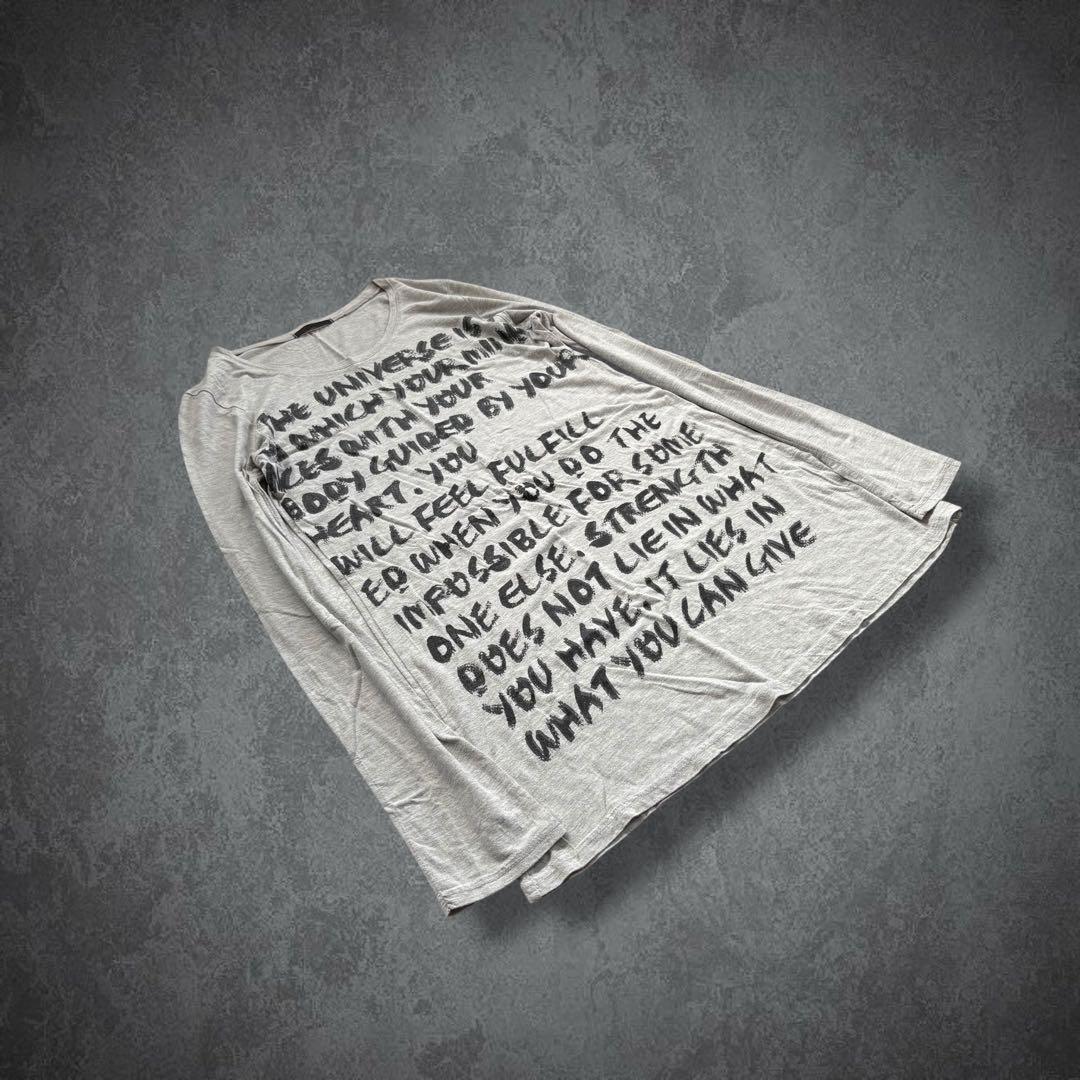 THE UNIVERSE IS
WHICH YOUR
CES WITH YOUR
BODY GUIDED BY YOUR
HEART. YOU
WILL FEEL FULFILL
ED WHEN YOU DO THE
IMPOSSIBLE FOR SOME
ONE ELSE. STRENGTH
DOES NOT LIE IN WHAT
YOU HAVE. IT LIES IN
WHAT YOU CAN GIVE